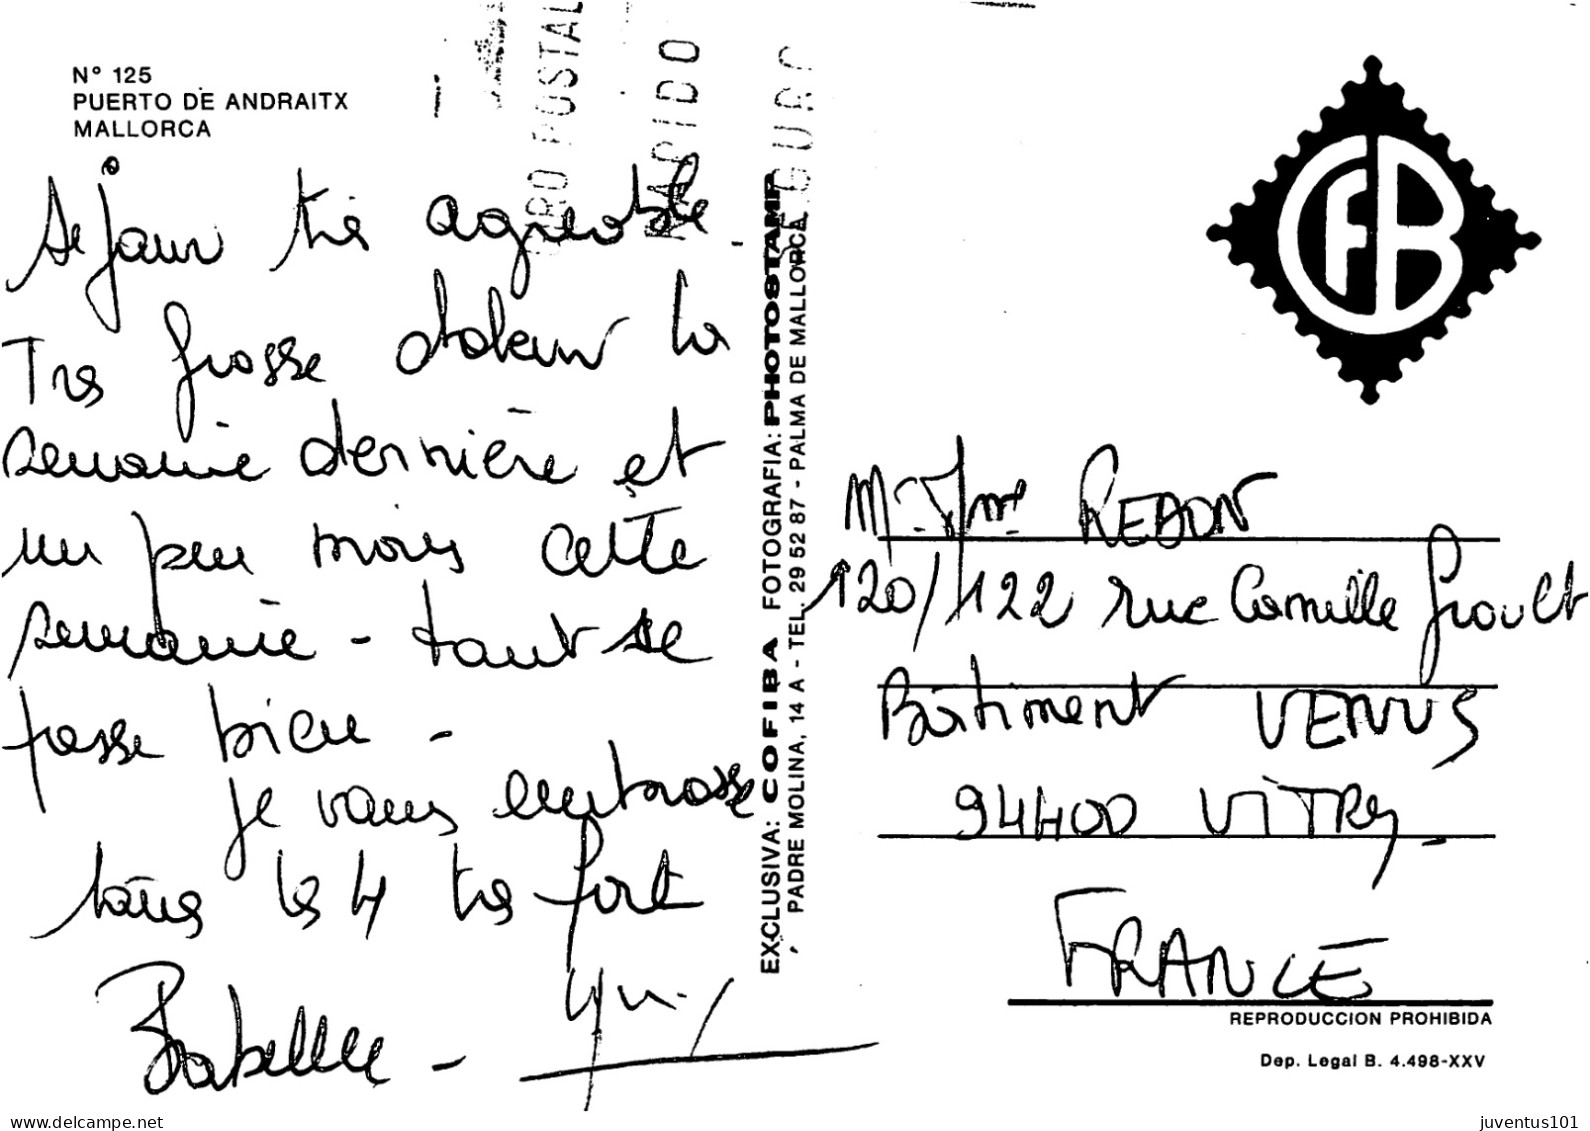 N° 125
PUERTO DE ANDRAITX
MALLORCA
Séjour très agréable.
Très grosse chaleur la
semaine dernière et
un peu moins cette
semaine - tout se
passe bien -
je vous embrasse
tous les 4 très fort
EXCLUSIVA: COFIBA FOTOGRAFIA: PHOTOSTAMP
PADRE MOLINA, 14 A - TEL. 29 52 87 - PALMA DE MALLORCA
POSTAL
CFB
Mr. Mme
120/122 rue Camille Groult
Bâtiment VENUS
94400 VITRY
FRANCE
REPRODUCCION PROHIBIDA
Dep. Legal B. 4.498-XXV
www.delcampe.net
juventus101